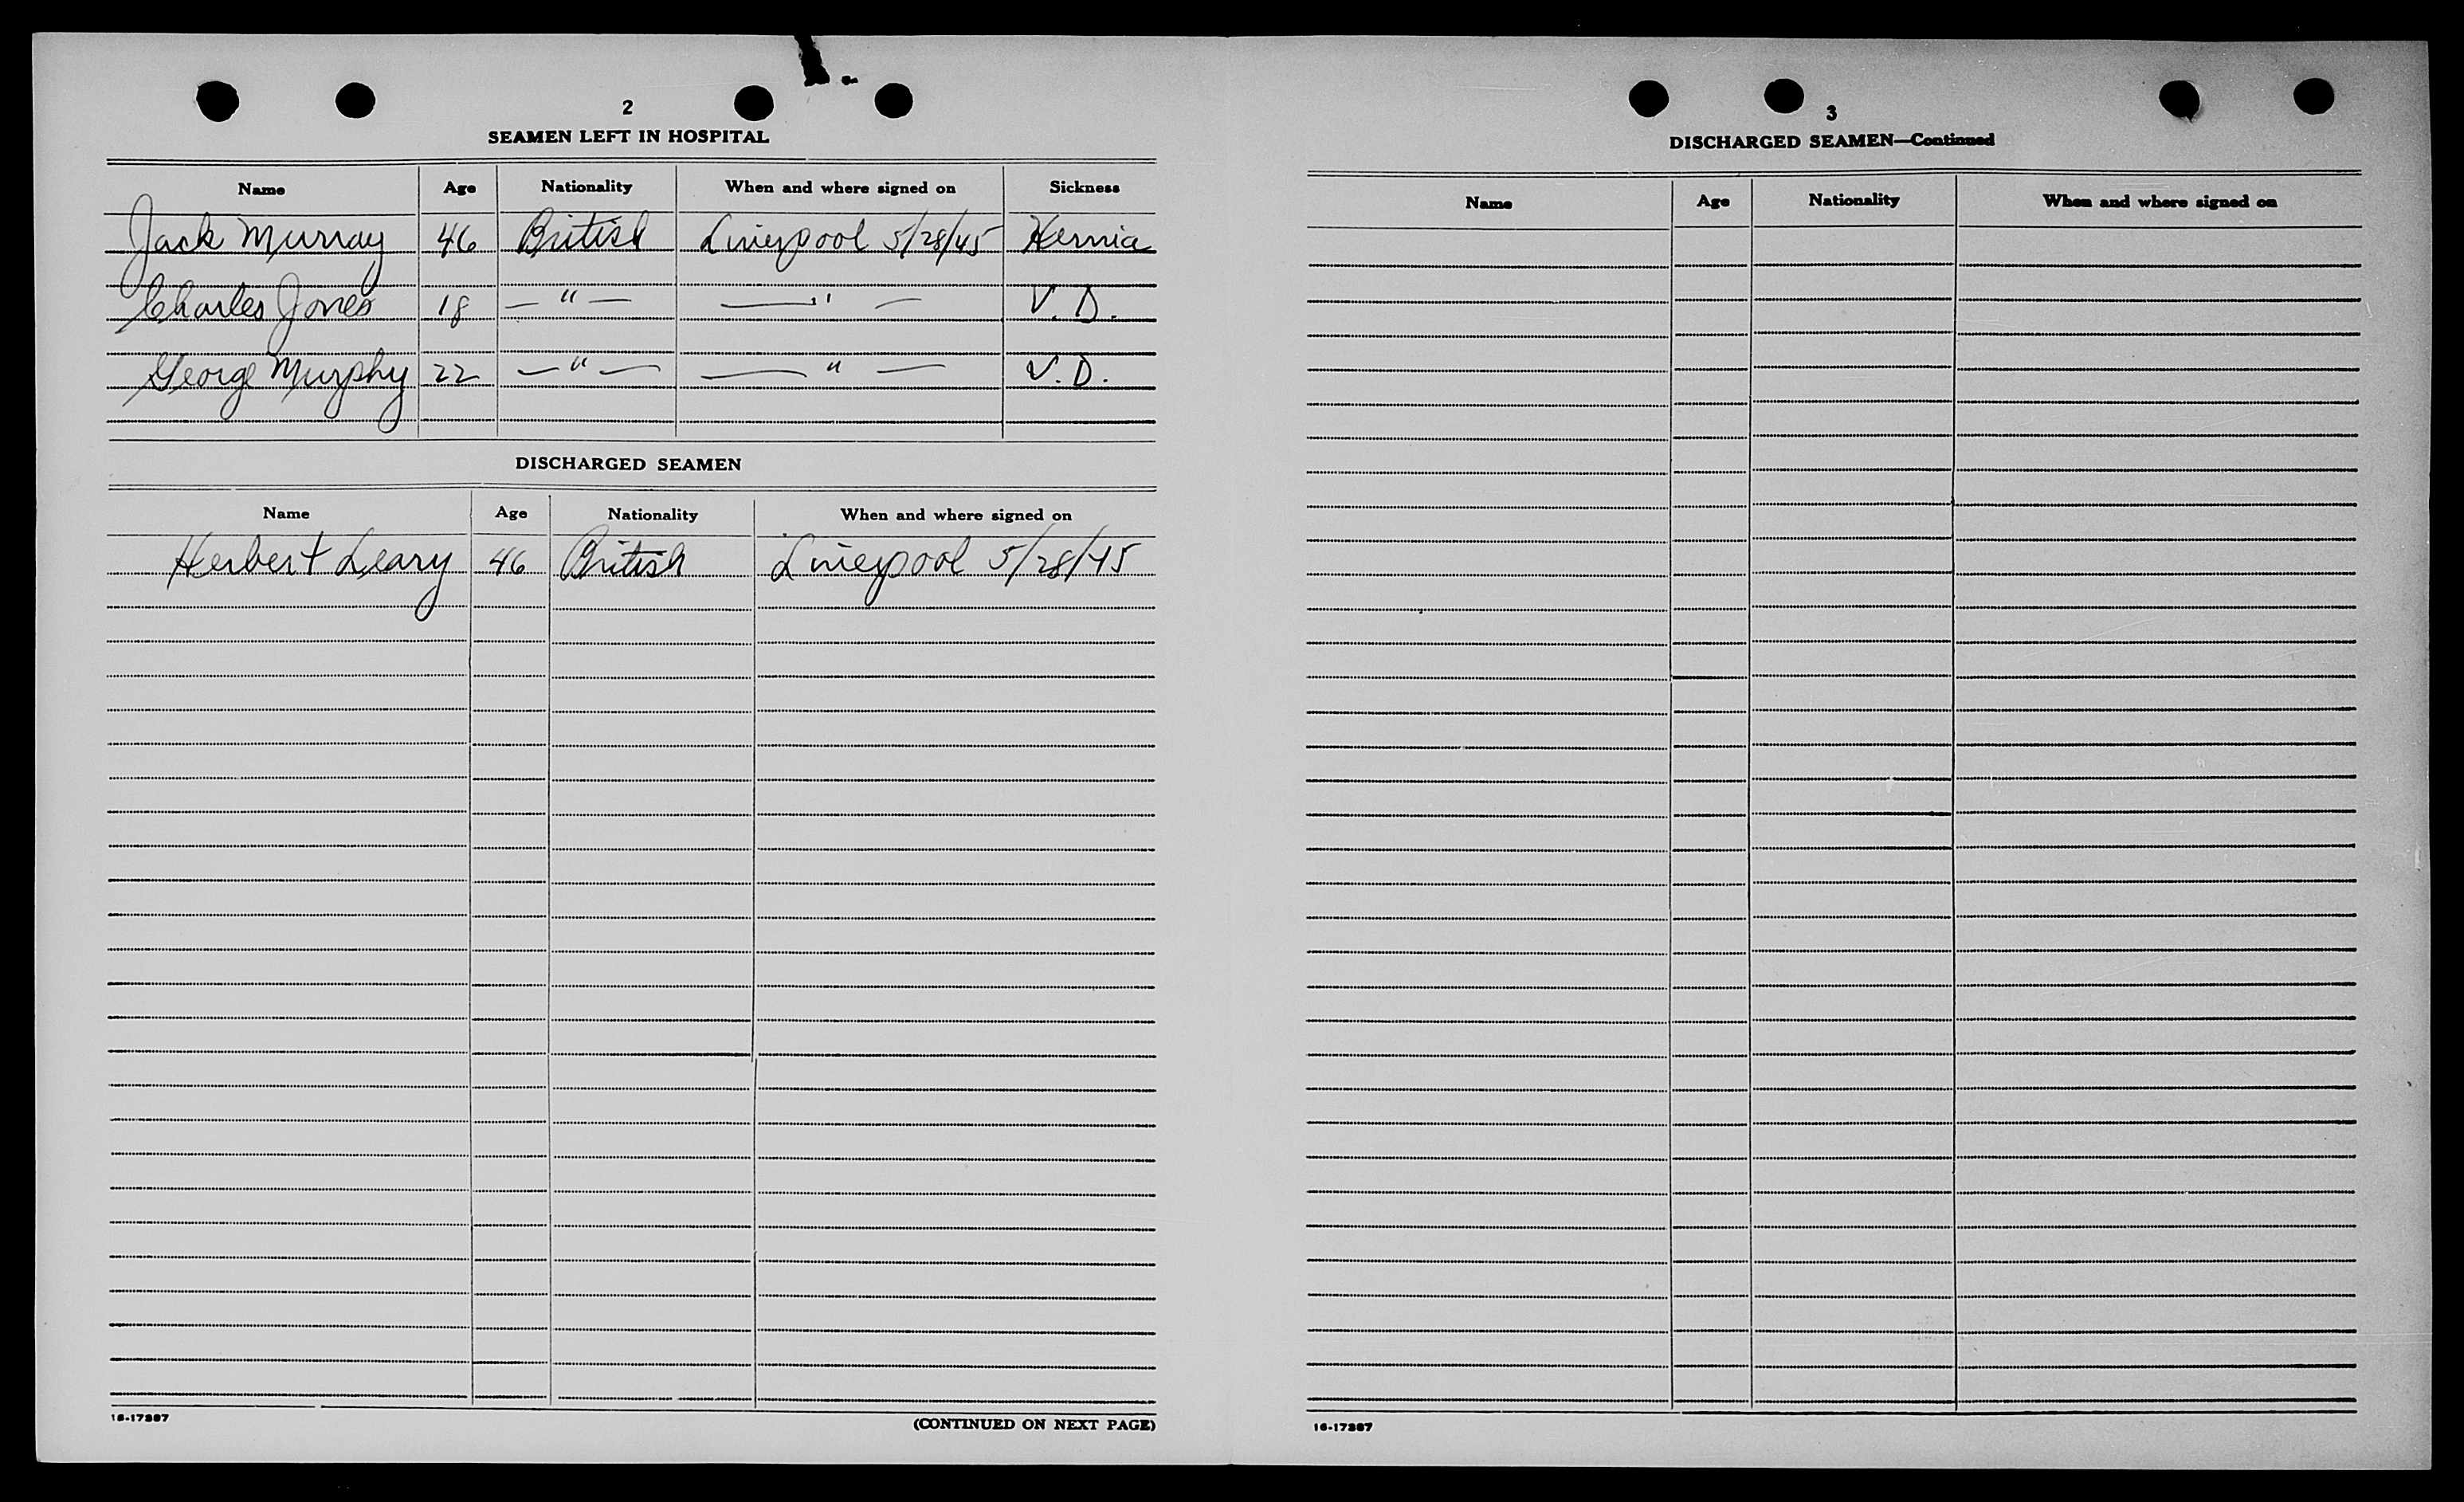 2
SEAMEN LEFT IN HOSPITAL
Name Age Nationality When and where signed on Sickness
Jack Murray 46 British Liverpool 5/28/45 Hernia
Charles Jones 18 — " — — " — V. D.
George Murphy 22 — " — — " — V. D.
DISCHARGED SEAMEN
Name Age Nationality When and where signed on
Herbert Leary 46 British Liverpool 5/28/45
16-17387
(CONTINUED ON NEXT PAGE)
3
DISCHARGED SEAMEN—Continued
Name Age Nationality When and where signed on
16-17387